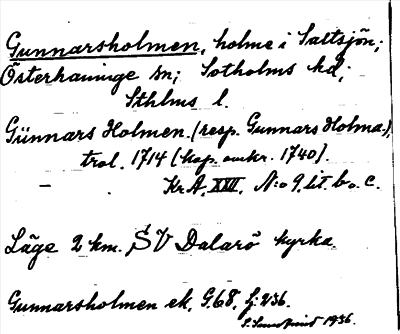 Gunnarsholmen, holme i Saltsjön;
Österhaninge sn; Sotholms hd;
Sthlms l.
Günnars Holmen. (resp. Gunnars Holma.),
trol. 1714 (kop. omkr. 1740).
Kr. A. XXVI, N:o 9, lit. b o. c.
Läge 2 km. SV Dalarö kyrka.
Gunnarsholmen ek, G.68, j: 236.
1936.